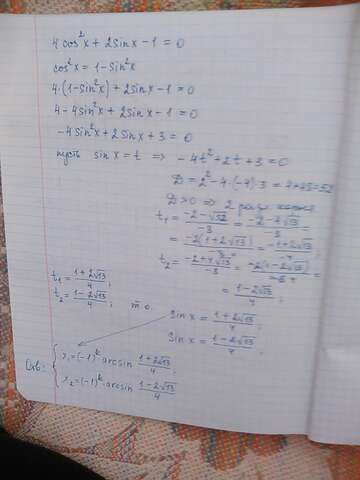 4cos²x + 2sinx - 1 = 0
cos²x = 1 - sin²x
4·(1-sin²x) + 2sinx - 1 = 0
4 - 4sin²x + 2sinx - 1 = 0
-4sin²x + 2sinx + 3 = 0
пусть sinx = t ⇒ -4t² + 2t + 3 = 0
D = 2² - 4·(-4)·3 = 4+48=52
D>0 ⇒ 2 разл.
t₁ = (-2-√52)/-8 = (-2-2√13)/-8 =
= -2(1+√13)/-8 =
t₂ = (-2+2√13)/-8 =
t₁ = (1+2√13)/4 ;
t₂ = (1-2√13)/4 ; т.о.
= (1-2√13)/4 ;
sinx = (1+2√13)/4 ;
sinx = (1-2√13)/4 ;
Отв: { x₁=(-1)ᵏ arcsin (1+2√13)/4 ;
x₂=(-1)ᵏ arcsin (1-2√13)/4